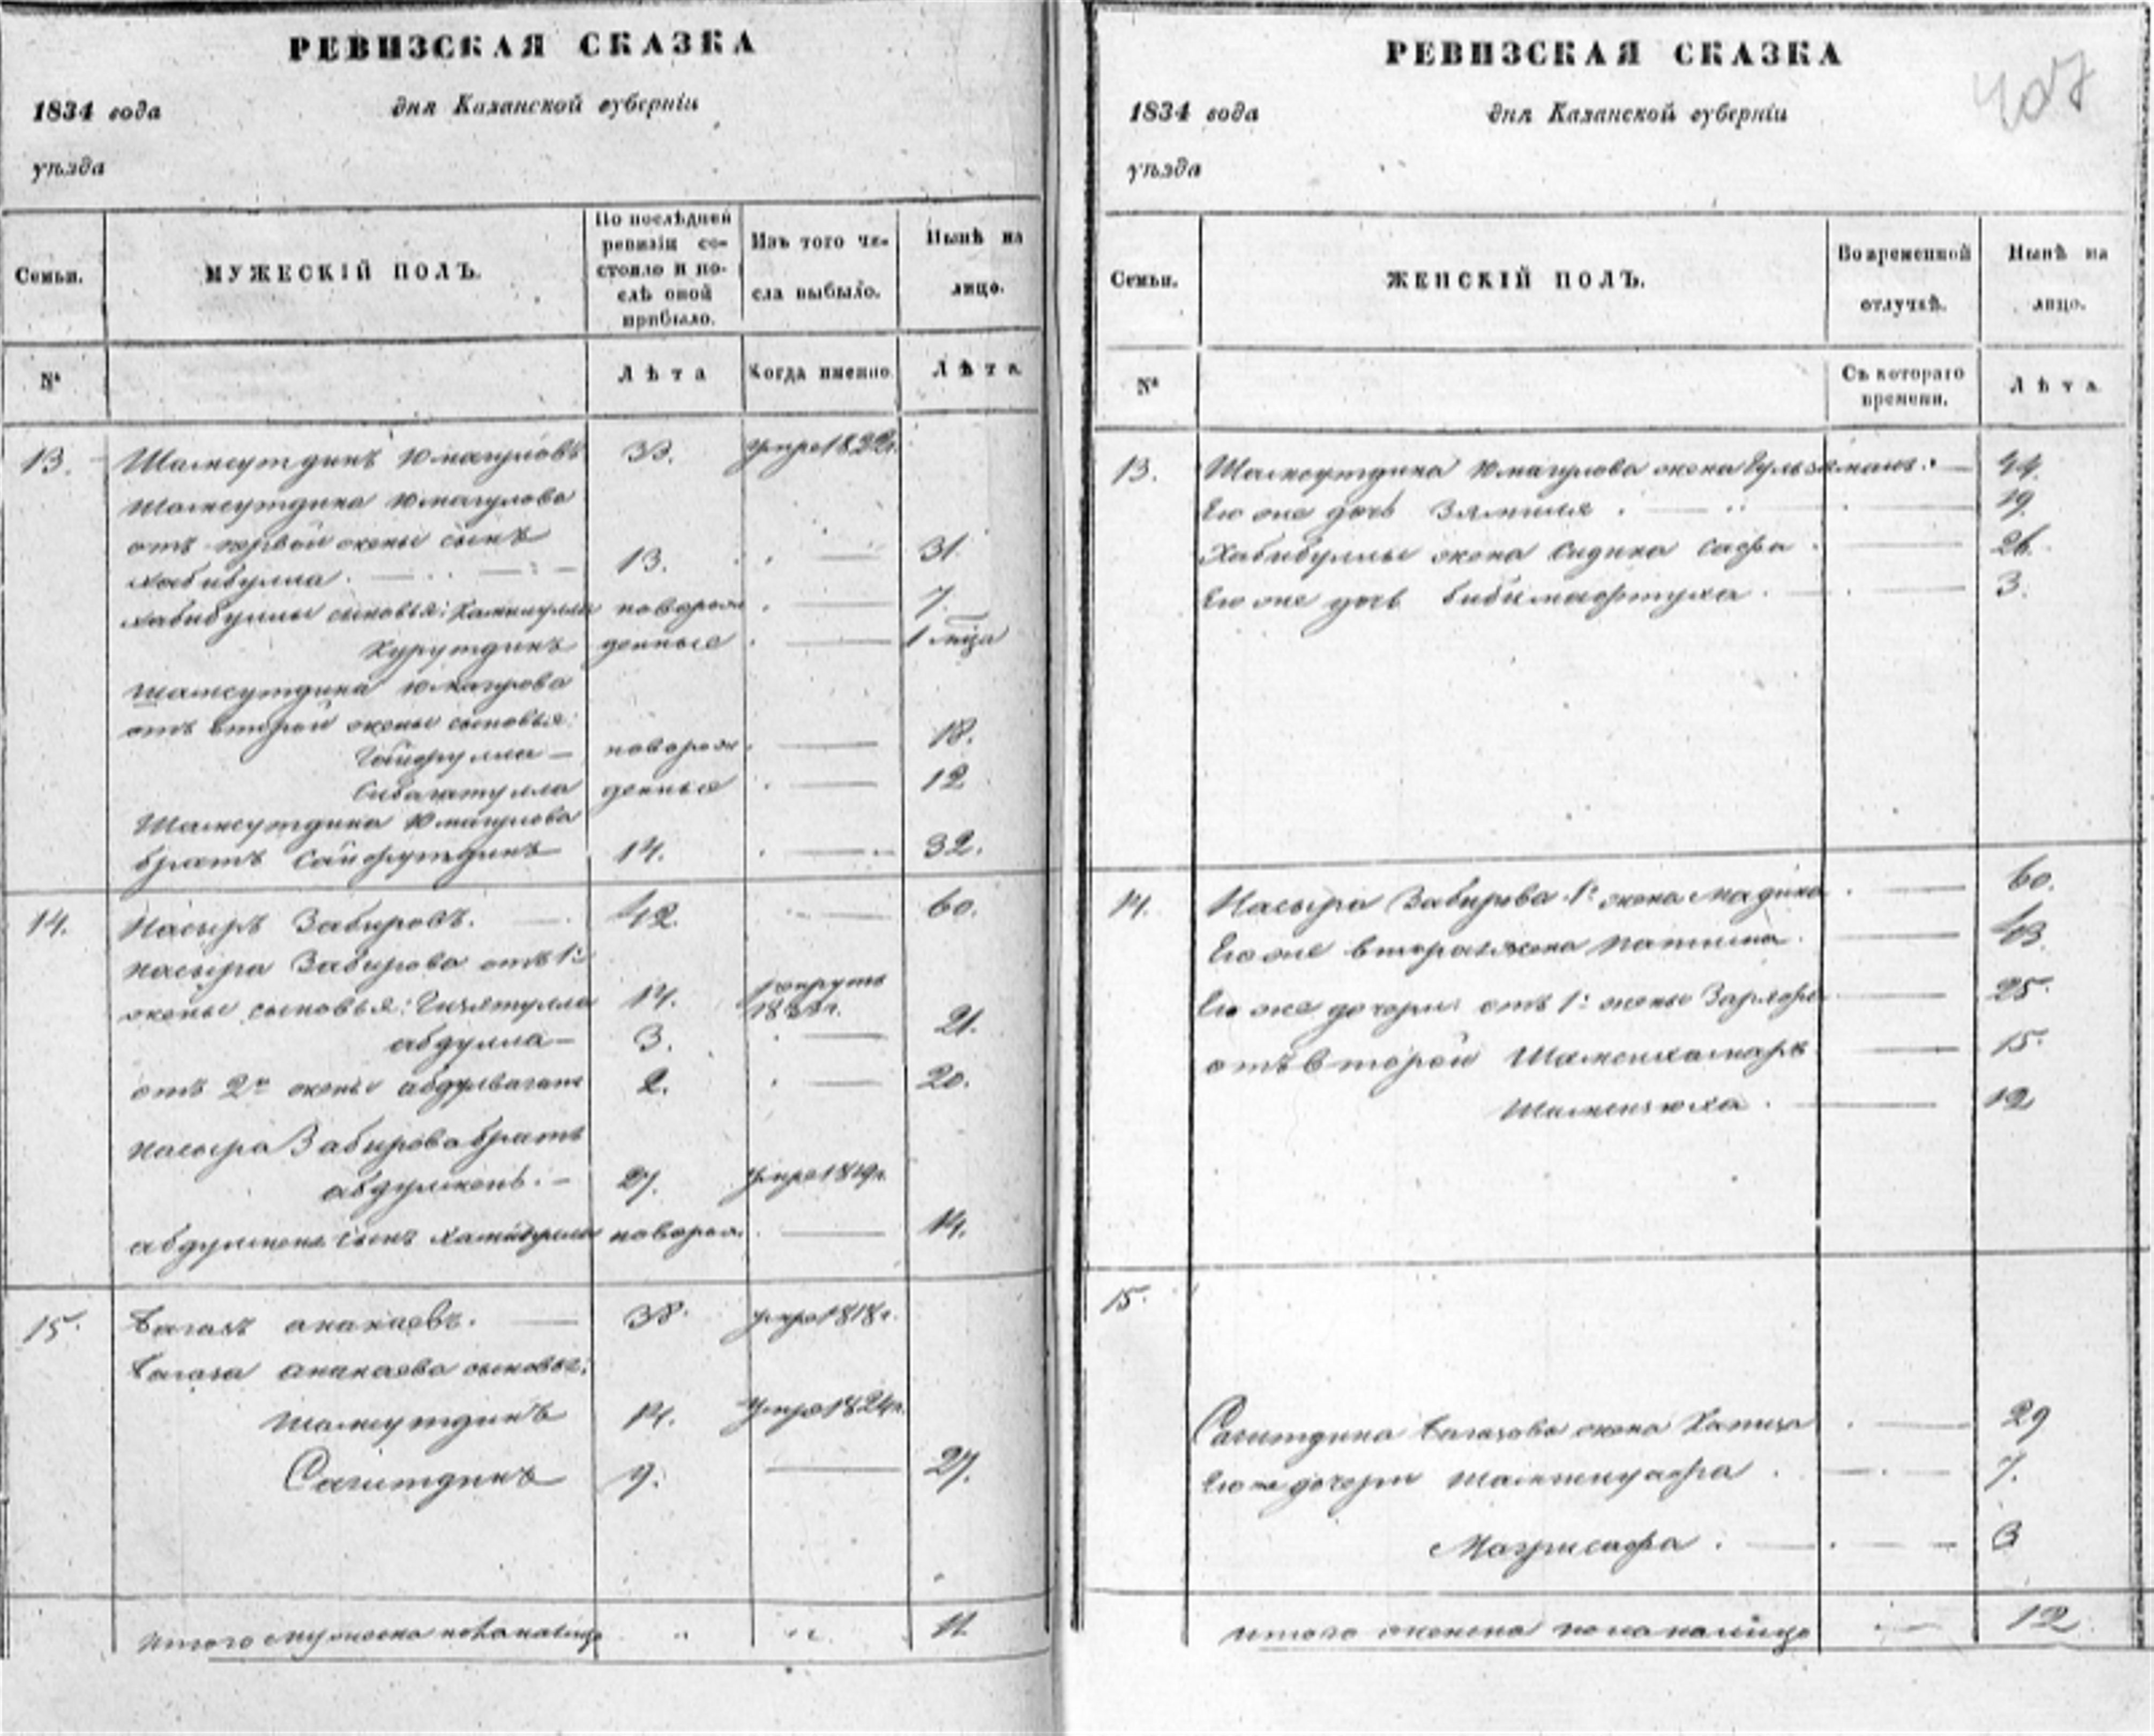 РЕВИЗСКАЯ СКАЗКА
1834 года дня Казанской губерніи
уѣзда
Семьи. МУЖЕСКІЙ ПОЛЪ. По послѣдней ревизіи состояло и послѣ оной прибыло. Изъ того числа выбыло. Нынѣ на лицо.
№ Лѣта Когда именно. Лѣта
13. Шамсутдинъ Юмагуловъ 33. умре 1822г.
Шамсутдина Юмагулова
отъ первой жены сынъ
Хабибулла. 13. 31.
Хабибуллы сыновья: новорож 7.
Нурутдинъ денные 1 мца
Шамсутдина Юмагулова
отъ второй жены сыновья:
новорож 18.
Сибагатулла денные 12
Шамсутдина Юмагулова
братъ Сайфутдинъ 14. 32.
14. Насыръ Забировъ. 42. 60.
Насыра Забирова отъ 1й
жены сыновья: 14.
абдулла 3. 21.
отъ 2й жены 2. 20.
Насыра Забирова братъ
27. умре 1819г.
сынъ новорож. 14.
15. Багазъ 38. умре 1818г.
Багаза сыновья:
Шамсутдинъ 14. умре 1824г.
Сагитдинъ 9. 27.
Итого мужеска пола налицо 11
РЕВИЗСКАЯ СКАЗКА
407
1834 года дня Казанской губерніи
уѣзда
Семьи. ЖЕНСКІЙ ПОЛЪ. Во временной отлучкѣ. Нынѣ на лицо.
№ Съ котораго времени. Лѣта
13. Шамсутдина Юмагулова жена 44.
Его же дочь Зямиля 19.
Хабибуллы жена Садика Сафа 26.
Его же дочь Бибимафтуха 3.
14. Насыра Забирова 1я жена Мадина 60.
Его же вторая жена 43.
Его же дочери отъ 1й жены 25.
отъ второй Шамсикамаръ 15.
12
15.
Сагитдина Багазова жена 29
Его же дочери 7.
3
Итого женска пола налицо 12